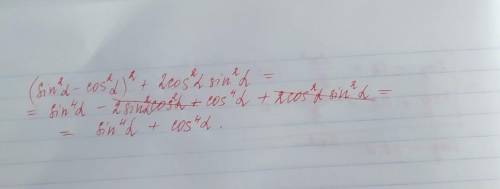 (sin²α - cos²α)² + 2cos²α sin²α =
= sin⁴α - 2sin²αcos²α + cos⁴α + 2cos²α sin²α =
= sin⁴α + cos⁴α.